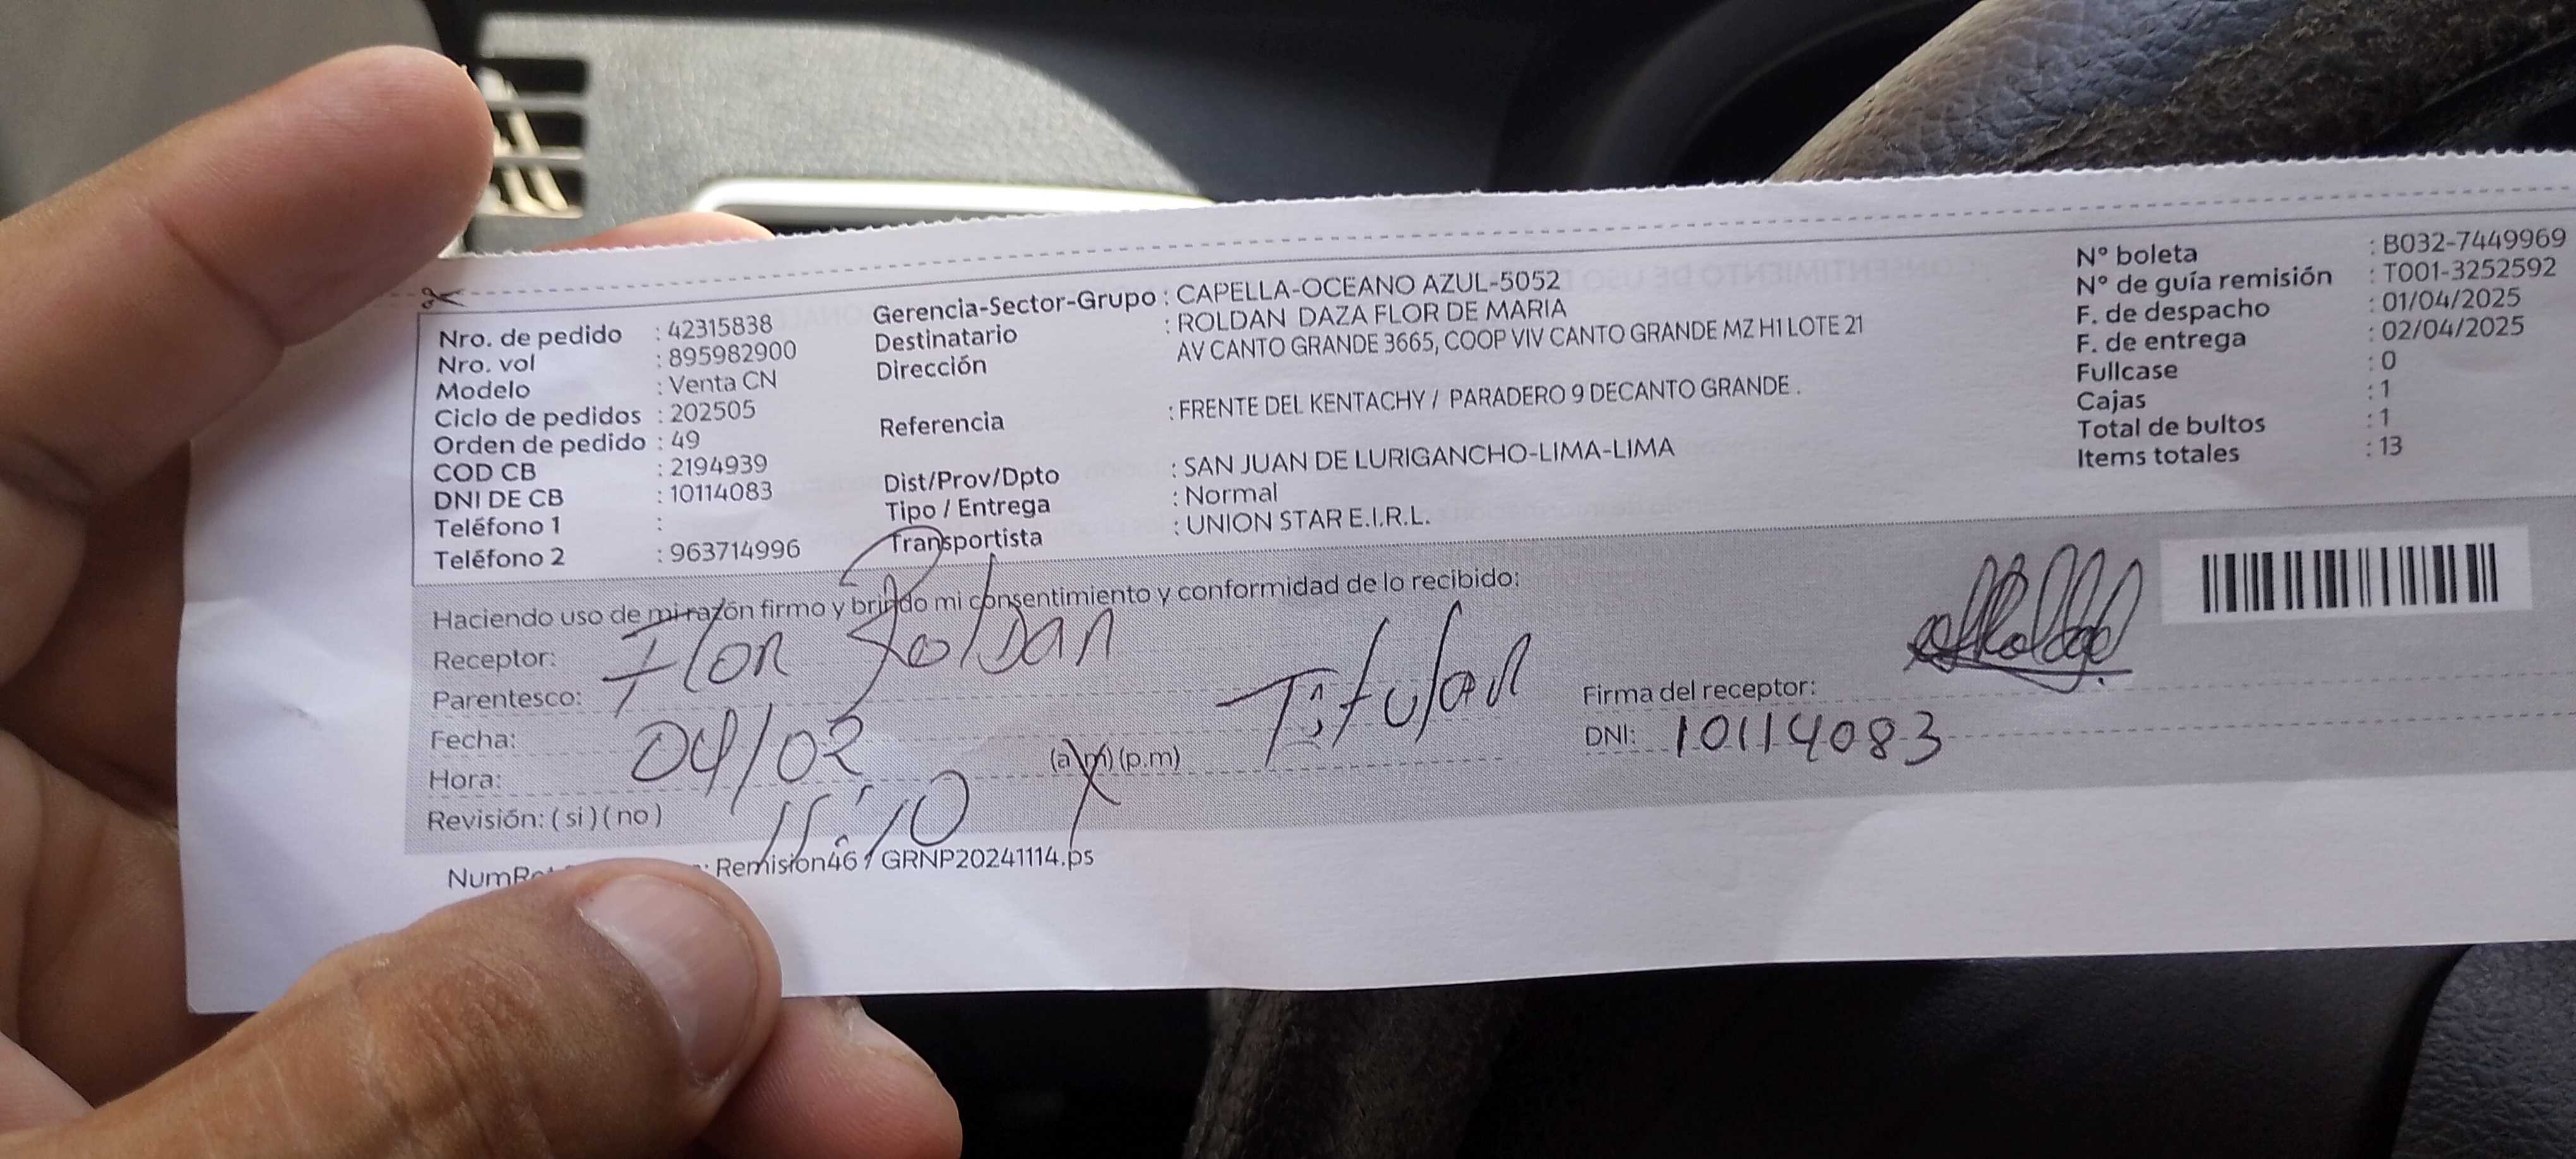 Nro. de pedido : 42315838
Nro. vol : 895982900
Modelo : Venta CN
Ciclo de pedidos : 202505
Orden de pedido : 49
COD CB : 2194939
DNI DE CB : 10114083
Teléfono 1 :
Teléfono 2 : 963714996
Gerencia-Sector-Grupo : CAPELLA-OCEANO AZUL-5052
Destinatario : ROLDAN DAZA FLOR DE MARIA
Dirección AV CANTO GRANDE 3665, COOP VIV CANTO GRANDE MZ H1 LOTE 21
Referencia : FRENTE DEL KENTACHY / PARADERO 9 DECANTO GRANDE .
Dist/Prov/Dpto : SAN JUAN DE LURIGANCHO-LIMA-LIMA
Tipo / Entrega : Normal
Transportista : UNION STAR E.I.R.L.
N° boleta : B032-7449969
N° de guía remisión : T001-3252592
F. de despacho : 01/04/2025
F. de entrega : 02/04/2025
Fullcase : 0
Cajas : 1
Total de bultos : 1
Items totales : 13
Haciendo uso de mi razón firmo y brindo mi consentimiento y conformidad de lo recibido:
Receptor: Flor Roldan
Parentesco: Titular
Fecha: 04/02
Hora: 15:10 (a.m) (p.m)
Revisión: ( si ) ( no )
Firma del receptor:
DNI: 10114083
Remision461 GRNP20241114.ps